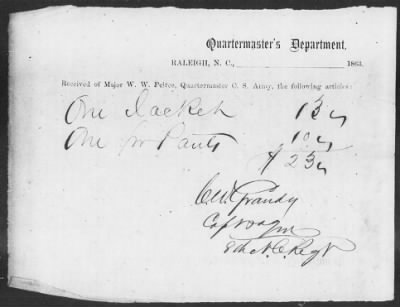 Quartermaster's Department,
RALEIGH, N. C., 1863.
Received of Major W. W. Peirce, Quartermaster C. S. Army, the following articles:
One Jacket 13
One pr Pants 10
$ 23
C.W. Grandy
Capt
8th N.C. Regt